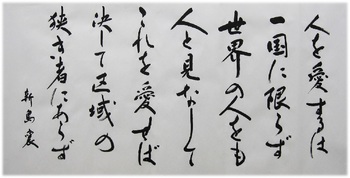 人を愛するは
一国に限らず
世界の人をも
人と見なして
これを愛せば
決して区域の
狭き者にあらず
新島襄